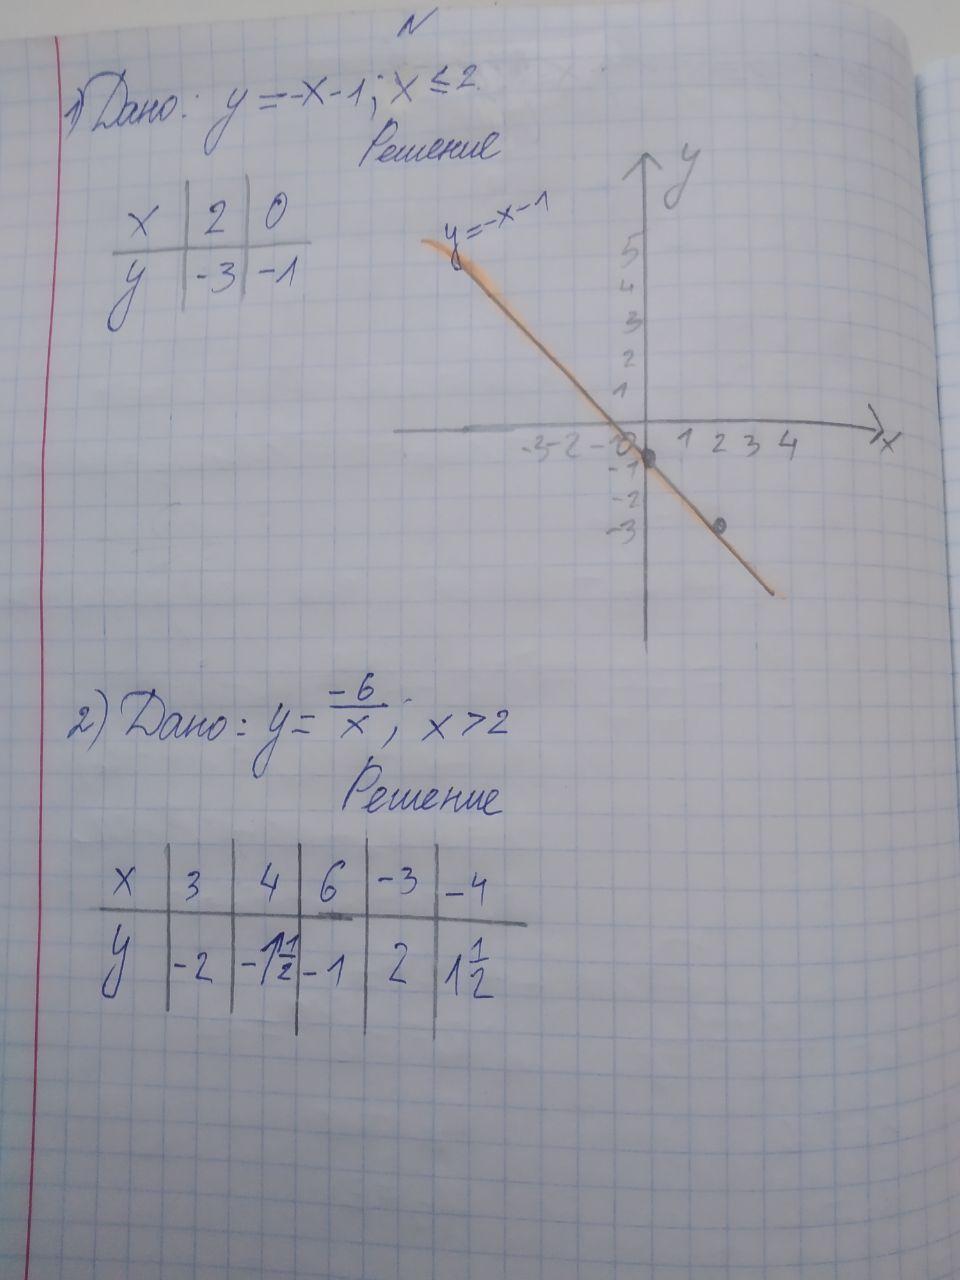 N
1) Дано: y = -x - 1; x ≤ 2
Решение
x | 2 | 0
y | -3 | -1
y = -x - 1
y
5
4
3
2
1
-3 -2 -1 0 1 2 3 4 x
-1
-2
-3
2) Дано: y = -6/x; x > 2
Решение
x | 3 | 4 | 6 | -3 | -4
y | -2 | -1 1/2 | -1 | 2 | 1 1/2